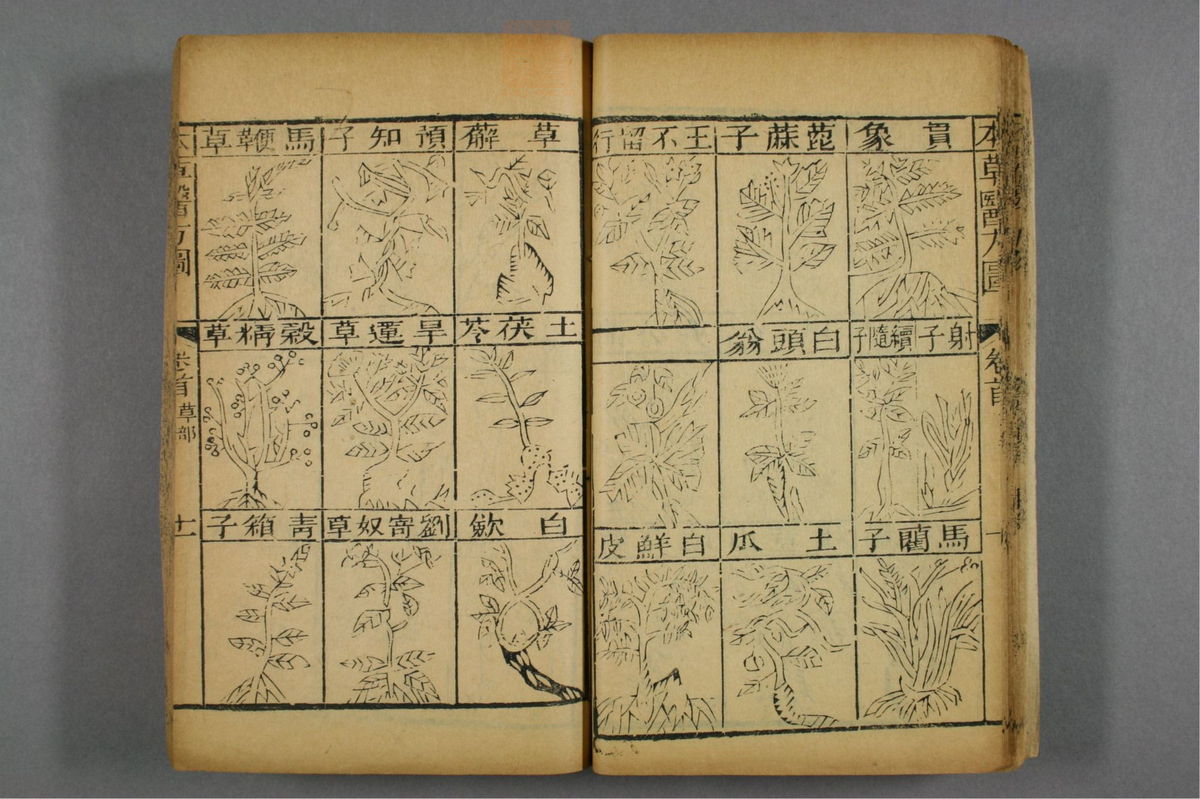 本草醫方圖
卷首
貫象
蓖蔴子
王不留行
射子
續隨子
白頭翁
馬藺子
土瓜
白鮮皮
草薢
預知子
馬鞭草
土茯苓
旱運草
穀精草
白歛
劉寄奴草
青箱子
本草醫方圖
卷首
草部
十一